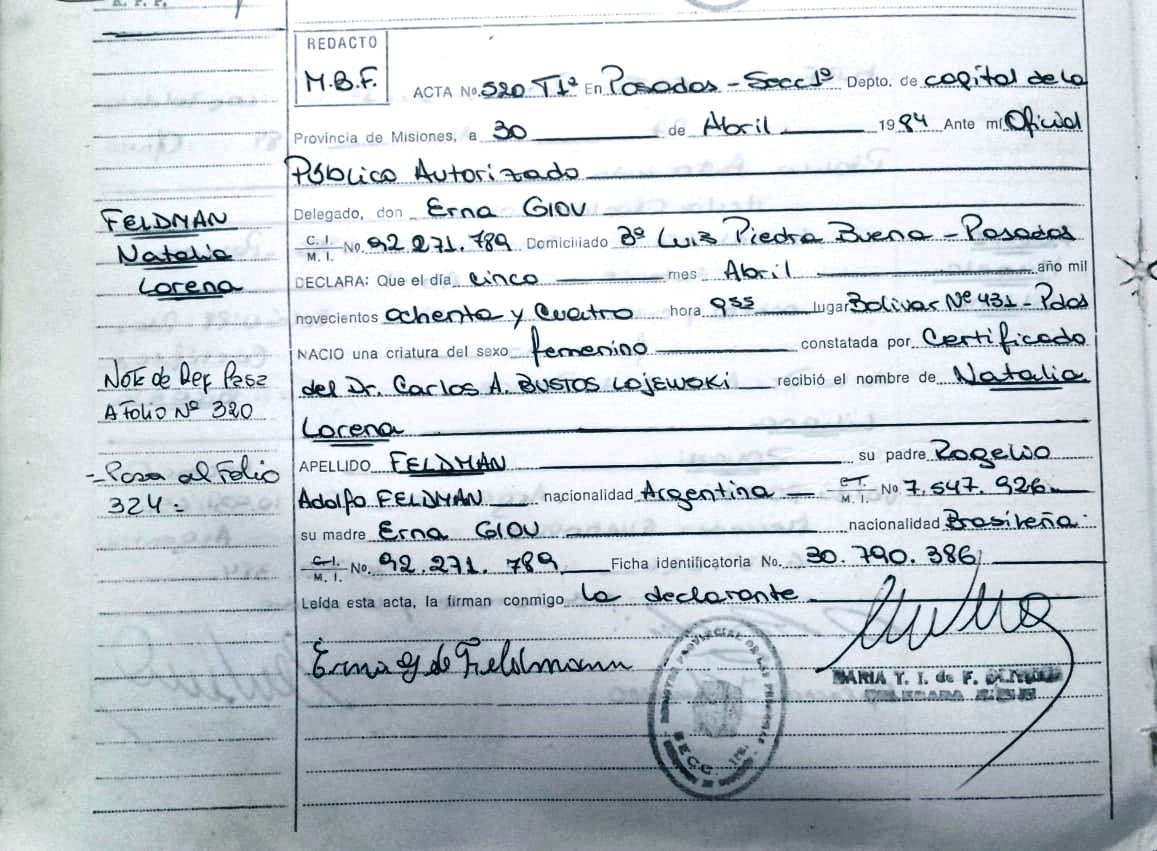 R. P. P.
REDACTO
M.B.F.
ACTA No. 520 T1º En Posadas - Secc 1º Depto. de capital de la
Provincia de Misiones, a 30 de Abril 1984 Ante mí Oficial
Público Autorizado
Delegado, don Erna GIOU
C. I. / M. I. No. 92.271.789 Domiciliado Bº Luis Piedra Buena - Posadas
DECLARA: Que el día cinco mes Abril año mil
novecientos ochenta y cuatro hora 9 55 lugar Bolivar Nº 431 - Pdas
NACIO una criatura del sexo femenino constatada por Certificado
del Dr. Carlos A. BUSTOS LOJEWSKI recibió el nombre de Natalia
Lorena
APELLIDO FELDMAN su padre Rogelio
Adolfo FELDMAN nacionalidad Argentina M. I. No 7.547.926
su madre Erna GIOU nacionalidad Brasileña
C. I. / M. I. No. 92.271.789 Ficha identificatoria No. 30.790.386
Leída esta acta, la firman conmigo la declarante
Erna G de Feldmann
MARIA T. I. de F.
DELEGADA
REGISTRO PROVINCIAL DE LAS PERSONAS
SECC. 1RA.
FELDMAN
Natalia
Lorena
Nota de Ref Pasa
A Folio Nº 320
- Pasa al Folio
324 -